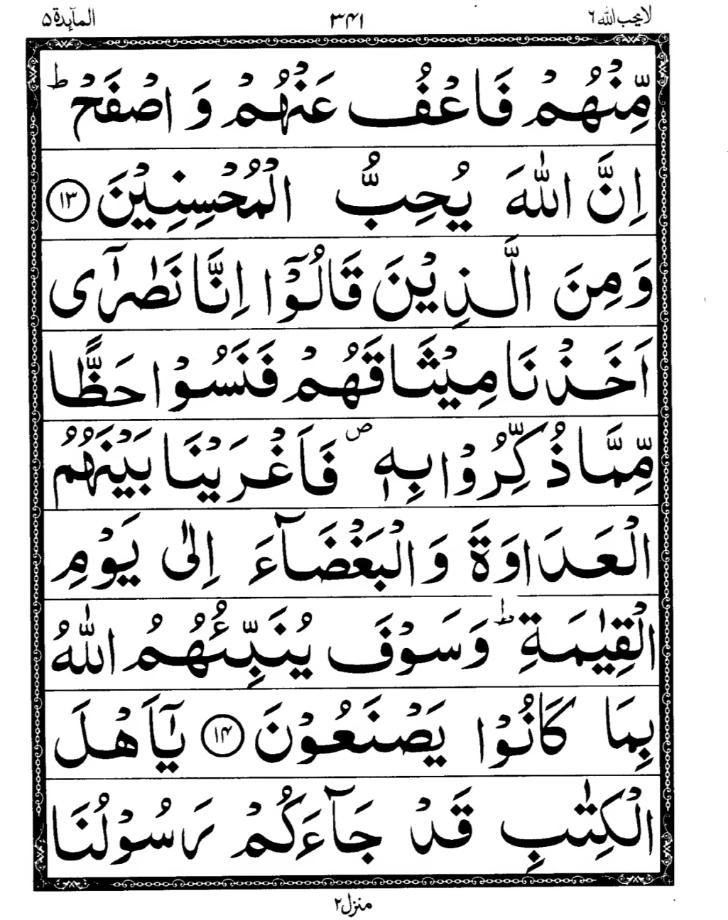 لایحب الله ۶ ۳۴۱ المآىِٕدة ۵
مِّنْهُمْ فَاعْفُ عَنْهُمْ وَ اصْفَحْ ؕ
اِنَّ اللّٰهَ یُحِبُّ الْمُحْسِنِیْنَ ۝۱۳
وَمِنَ الَّذِیْنَ قَالُوْۤا اِنَّا نَصٰرٰۤی
اَخَذْنَا مِیْثَاقَهُمْ فَنَسُوْا حَظًّا
مِّمَّا ذُكِّرُوْا بِهٖ ۪ فَاَغْرَیْنَا بَیْنَهُمُ
الْعَدَاوَةَ وَالْبَغْضَآءَ اِلٰی یَوْمِ
الْقِیٰمَةِ ؕ وَسَوْفَ یُنَبِّئُهُمُ اللّٰهُ
بِمَا كَانُوْا یَصْنَعُوْنَ ۝۱۴ یٰۤاَهْلَ
الْكِتٰبِ قَدْ جَآءَكُمْ رَسُوْلُنَا
منزل ۲